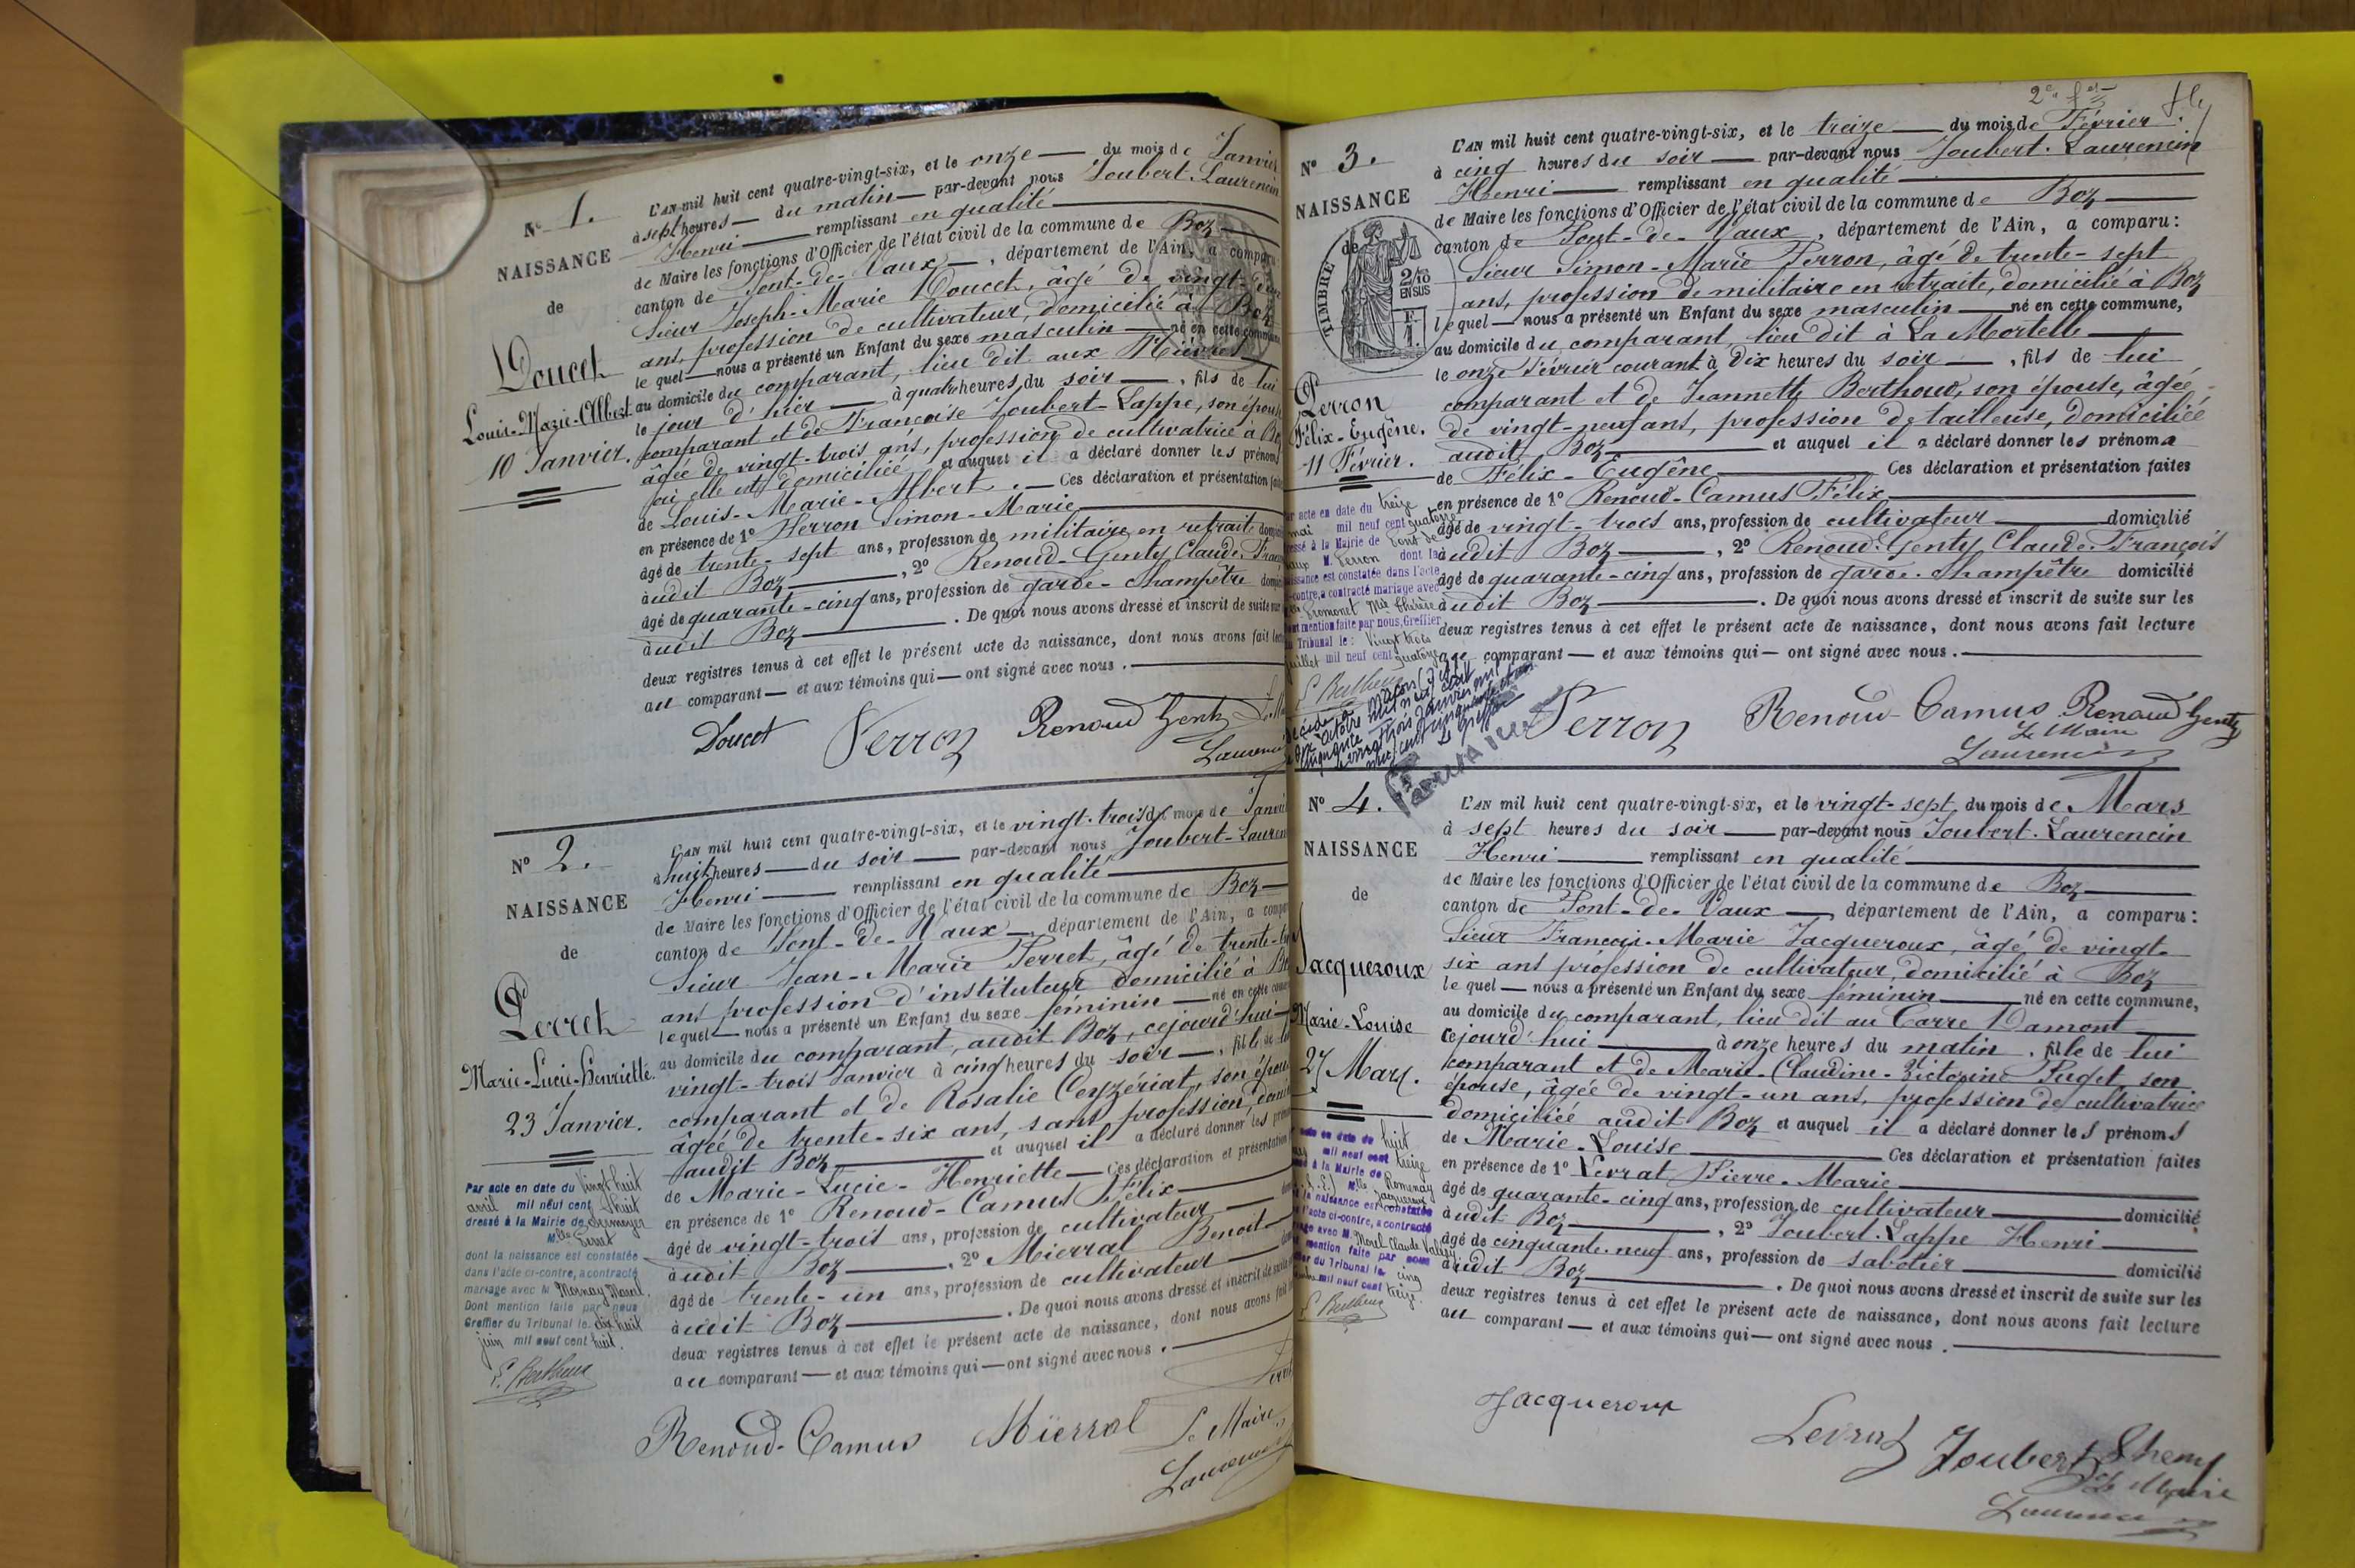 N° 1.
NAISSANCE
de
Doucet
Louis-Marie-Albert
10 Janvier.
L'AN mil huit cent quatre-vingt-six, et le onze — du mois de Janvier
à sept heures — du matin — par-devant nous Joubert-Laurencin
Henri — remplissant en qualité
de Maire les fonctions d'Officier de l'état civil de la commune de Boz
canton de Pont-de-Vaux —, département de l'Ain, a comparu
Sieur Joseph-Marie Doucet, âgé de vingt-
ans, profession de cultivateur, domicilié à Boz
lequel — nous a présenté un Enfant du sexe masculin — né en cette commune
au domicile du comparant, lieu dit aux
le jour d'hier — à quatre heures du soir —, fils de lui
comparant et de Françoise Joubert-Lappe, son épouse
âgée de vingt-trois ans, profession de cultivatrice à Boz
où elle est domiciliée et auquel il a déclaré donner les prénoms
de Louis-Marie-Albert. — Ces déclaration et présentation
en présence de 1° Perron Simon-Marie
âgé de trente-sept ans, profession de militaire en retraite
audit Boz —, 2° Renoud-Genty Claude
âgé de quarante-cinq ans, profession de garde-champêtre
audit Boz — . De quoi nous avons dressé et inscrit de suite sur
deux registres tenus à cet effet le présent acte de naissance, dont nous avons fait
au comparant — et aux témoins qui — ont signé avec nous.
Doucet Perron Renoud Genty
N° 2.
NAISSANCE
de
Perret
Marie-Lucie-Henriette.
23 Janvier.
Par acte en date du vingt huit
avril mil neuf cent huit
dressé à la Mairie de Sermoyer
Mlle Perret
dont la naissance est constatée
dans l'acte ci-contre, a contracté
mariage avec M Mornay Marcel.
Dont mention faite par nous
Greffier du Tribunal le dix huit
juin mil neuf cent huit.
L'AN mil huit cent quatre-vingt-six, et le vingt-trois du mois de Janvier
à huit heures — du soir — par-devant nous Joubert-Laurencin
Henri — remplissant en qualité
de Maire les fonctions d'Officier de l'état civil de la commune de Boz
canton de Pont-de-Vaux —, département de l'Ain, a comparu
Sieur Jean-Marie Perret, âgé de trente-
ans profession d'instituteur domicilié à Boz
lequel — nous a présenté un Enfant du sexe féminin — né en cette commune
au domicile du comparant, audit Boz, cejourd'hui
vingt-trois Janvier à cinq heures du soir —, fille de lui
comparant et de Rosalie Ceyzériat, son épouse
âgée de trente-six ans, sans profession,
audit Boz — et auquel il a déclaré donner les prénoms
de Marie-Lucie-Henriette — Ces déclaration et présentation
en présence de 1° Renoud-Camus Félix
âgé de vingt-trois ans, profession de cultivateur
audit Boz —, 2° Mierral Benoit
âgé de trente-un ans, profession de cultivateur
audit Boz — . De quoi nous avons dressé et inscrit de suite
deux registres tenus à cet effet le présent acte de naissance, dont nous avons fait
au comparant — et aux témoins qui — ont signé avec nous.
Renoud-Camus Mierral Le Maire
N° 3.
NAISSANCE
de
TIMBRE
2/10
EN SUS
Perron
Félix-Eugène.
11 Février.
acte en date du treize
mai mil neuf cent quatorze
à la Mairie de Pont de
Vaux M. Perron dont la
naissance est constatée dans l'acte
ci-contre, a contracté mariage avec
mention faite par nous, Greffier
Tribunal le: vingt trois
juillet mil neuf cent quatorze
L'AN mil huit cent quatre-vingt-six, et le treize — du mois de Février
à cinq heures du soir — par-devant nous Joubert-Laurencin
Henri — remplissant en qualité
de Maire les fonctions d'Officier de l'état civil de la commune de Boz
canton de Pont-de-Vaux, département de l'Ain, a comparu:
Sieur Simon-Marie Perron, âgé de trente-sept
ans, profession de militaire en retraite, domicilié à Boz
lequel — nous a présenté un Enfant du sexe masculin — né en cette commune,
au domicile du comparant, lieu dit à La Mortelle
le onze Février courant à Dix heures du soir —, fils de lui
comparant et de Jeannette Berthoud, son épouse, âgée
de vingt-neuf ans, profession de tailleuse, domiciliée
audit Boz — et auquel il a déclaré donner les prénoms
de Félix-Eugène — Ces déclaration et présentation faites
en présence de 1° Renoud-Camus Félix
âgé de vingt-trois ans, profession de cultivateur — domicilié
audit Boz —, 2° Renoud-Genty Claude-François
âgé de quarante-cinq ans, profession de garde-champêtre domicilié
audit Boz — . De quoi nous avons dressé et inscrit de suite sur les
deux registres tenus à cet effet le présent acte de naissance, dont nous avons fait lecture
comparant — et aux témoins qui — ont signé avec nous.
Perron Renoud-Camus Renoud Genty
Le Maire
N° 4.
NAISSANCE
de
Jacqueroux
Marie-Louise
27 Mars.
L'AN mil huit cent quatre-vingt-six, et le vingt-sept du mois de Mars
à sept heures du soir — par-devant nous Joubert-Laurencin
Henri — remplissant en qualité
de Maire les fonctions d'Officier de l'état civil de la commune de Boz
canton de Pont-de-Vaux —, département de l'Ain, a comparu:
Sieur François-Marie Jacqueroux, âgé de vingt-
six ans profession de cultivateur, domicilié à Boz
lequel — nous a présenté un Enfant du sexe féminin — né en cette commune,
au domicile du comparant, lieu dit au Carre Damont
cejourd'hui — à onze heures du matin, fille de lui
comparant et de Marie-Claudine-Victorine Puget son
épouse, âgée de vingt-un ans, profession de cultivatrice
domiciliée audit Boz et auquel il a déclaré donner les prénoms
de Marie-Louise — Ces déclaration et présentation faites
en présence de 1° Levrat Pierre-Marie
âgé de quarante-cinq ans, profession de cultivateur — domicilié
audit Boz —, 2° Joubert-Lappe Henri
âgé de cinquante-neuf ans, profession de sabotier — domicilié
audit Boz — . De quoi nous avons dressé et inscrit de suite sur les
deux registres tenus à cet effet le présent acte de naissance, dont nous avons fait lecture
au comparant — et aux témoins qui — ont signé avec nous.
Jacqueroux
Levrat Joubert
Le Maire